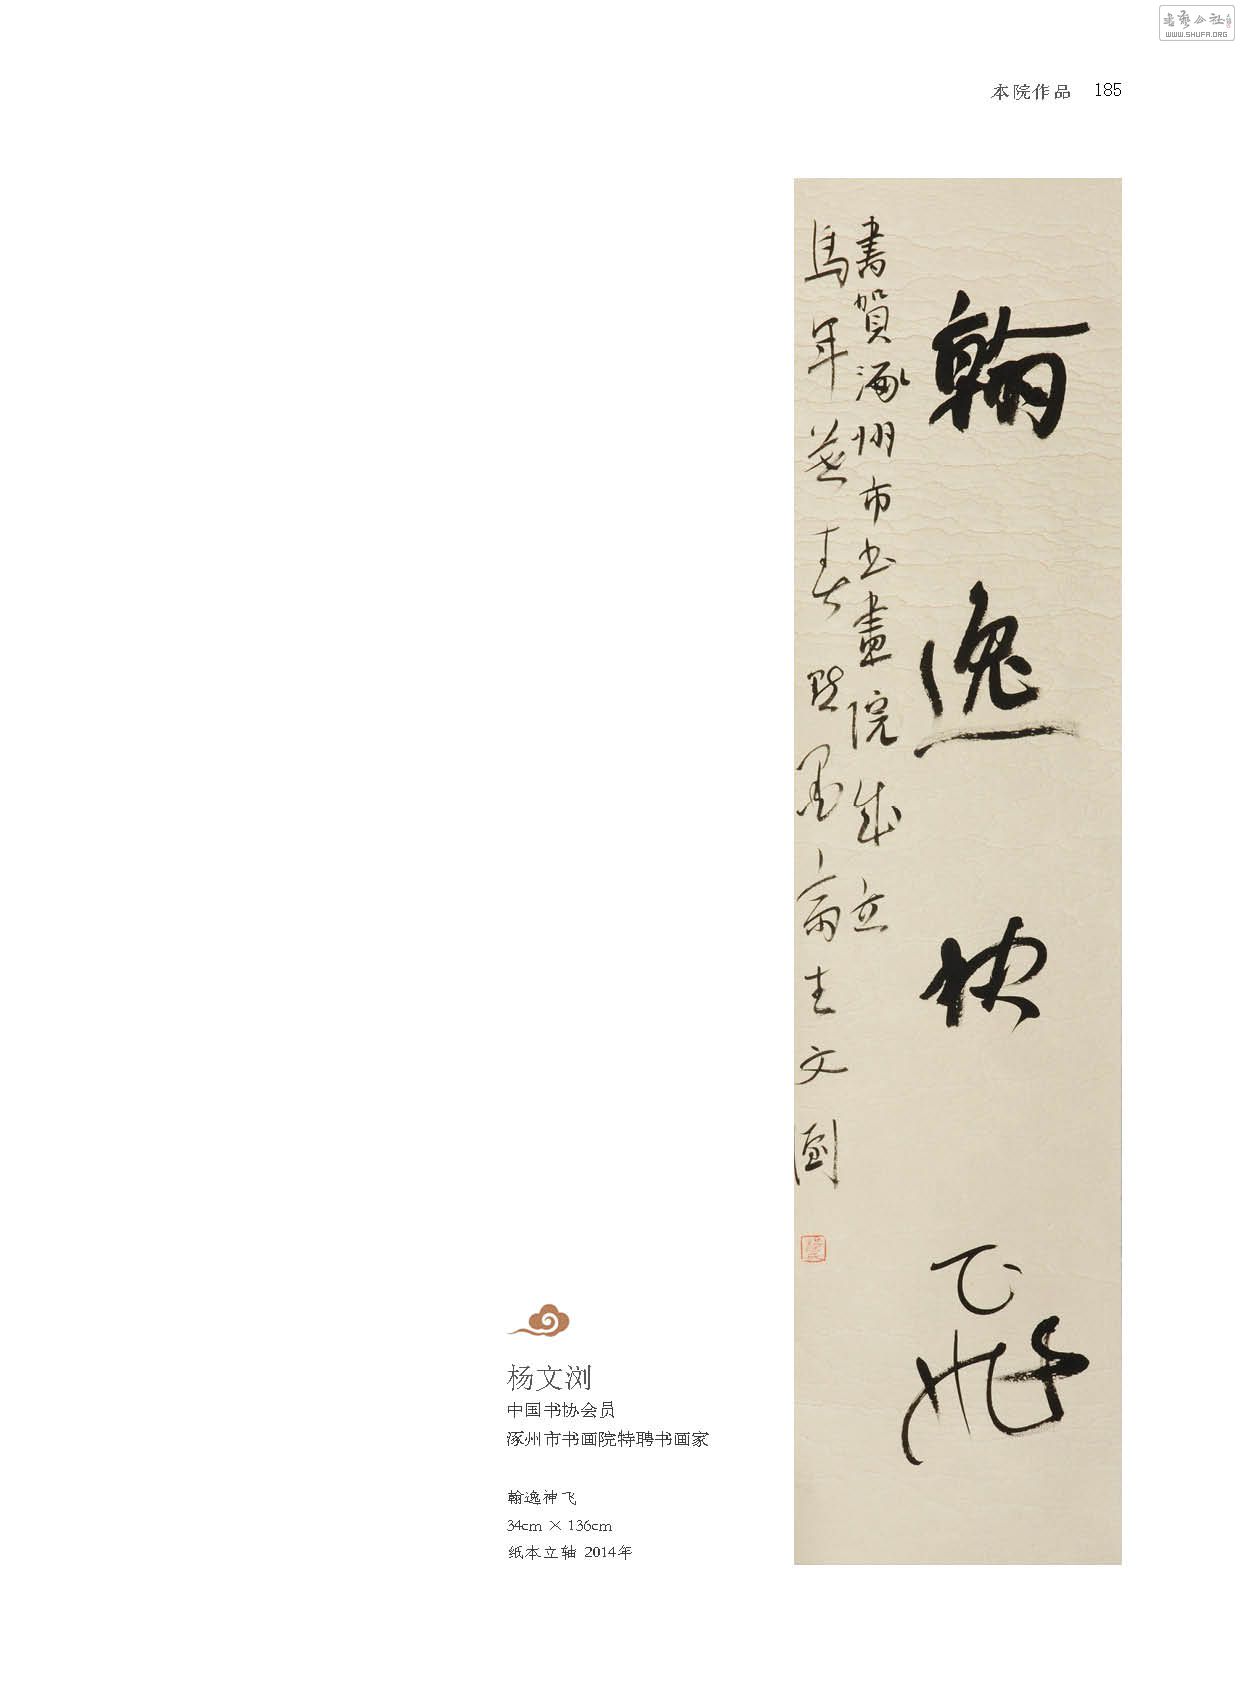 书艺公社
WWW.SHUFA.ORG
本院作品 185
翰逸神飛
書賀涿州市书畫院成立
馬年暮春默墨齋主文瀏
杨文浏
中国书协会员
涿州市书画院特聘书画家
翰逸神飞
34cm × 136cm
纸本立轴 2014年